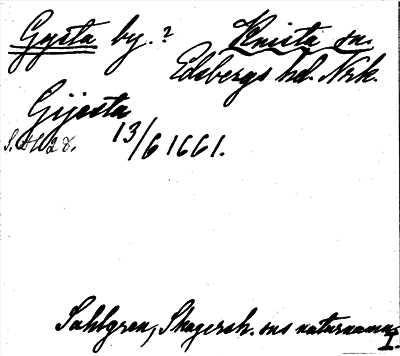 Gysta by. ? Knista sn.
Edsbergs hd. Nrk.
Gijesta
13/6 1661.
Sahlgren, Skagersh. sns naturnamn,
I.